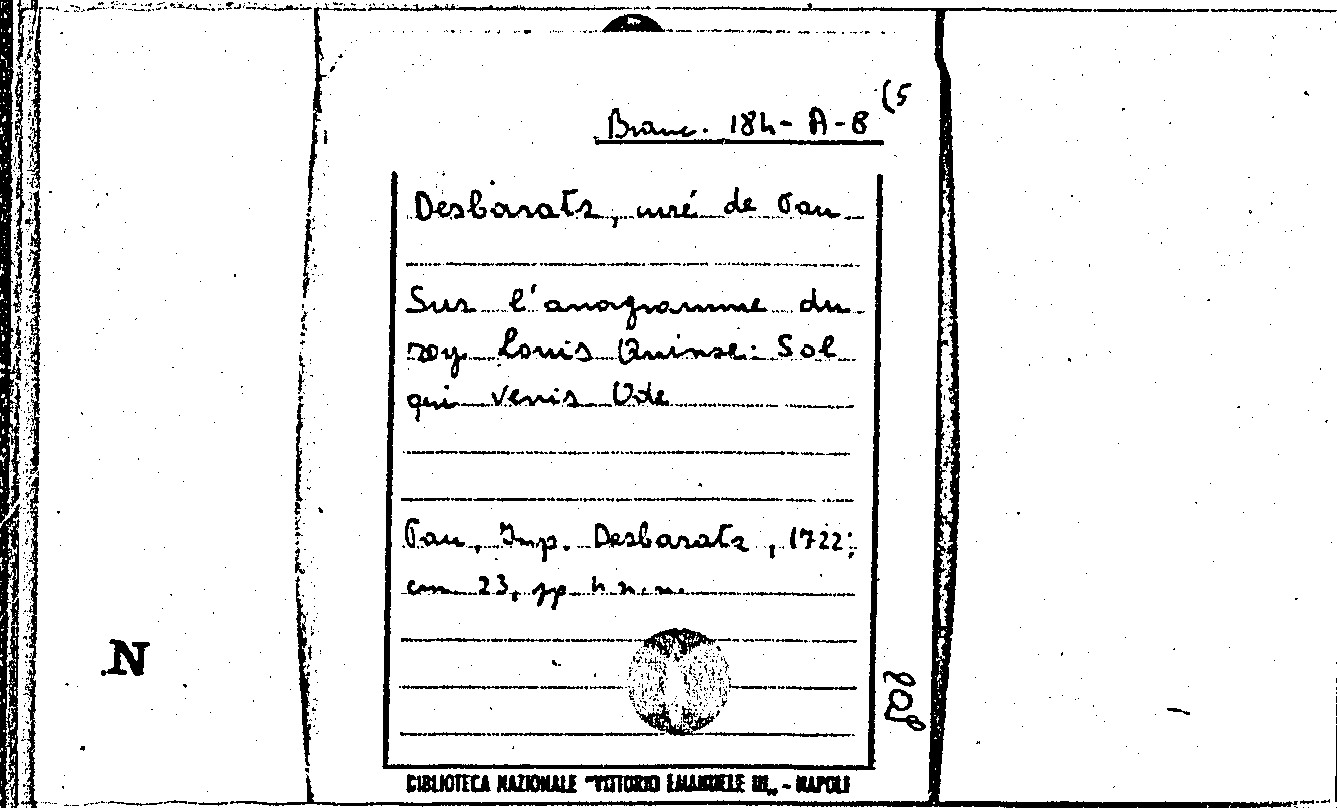 Branc. 184- A-8 (5
Desbarats, curé de Pau
Sur l'anagramme du
roy Louis Quinse: Sol
qui venis Ode
Pau, Imp. Desbarats, 1722;
cm. 23, pp 4 n. n.
N
808
BIBLIOTECA NAZIONALE "VITTORIO EMANUELE III" - NAPOLI